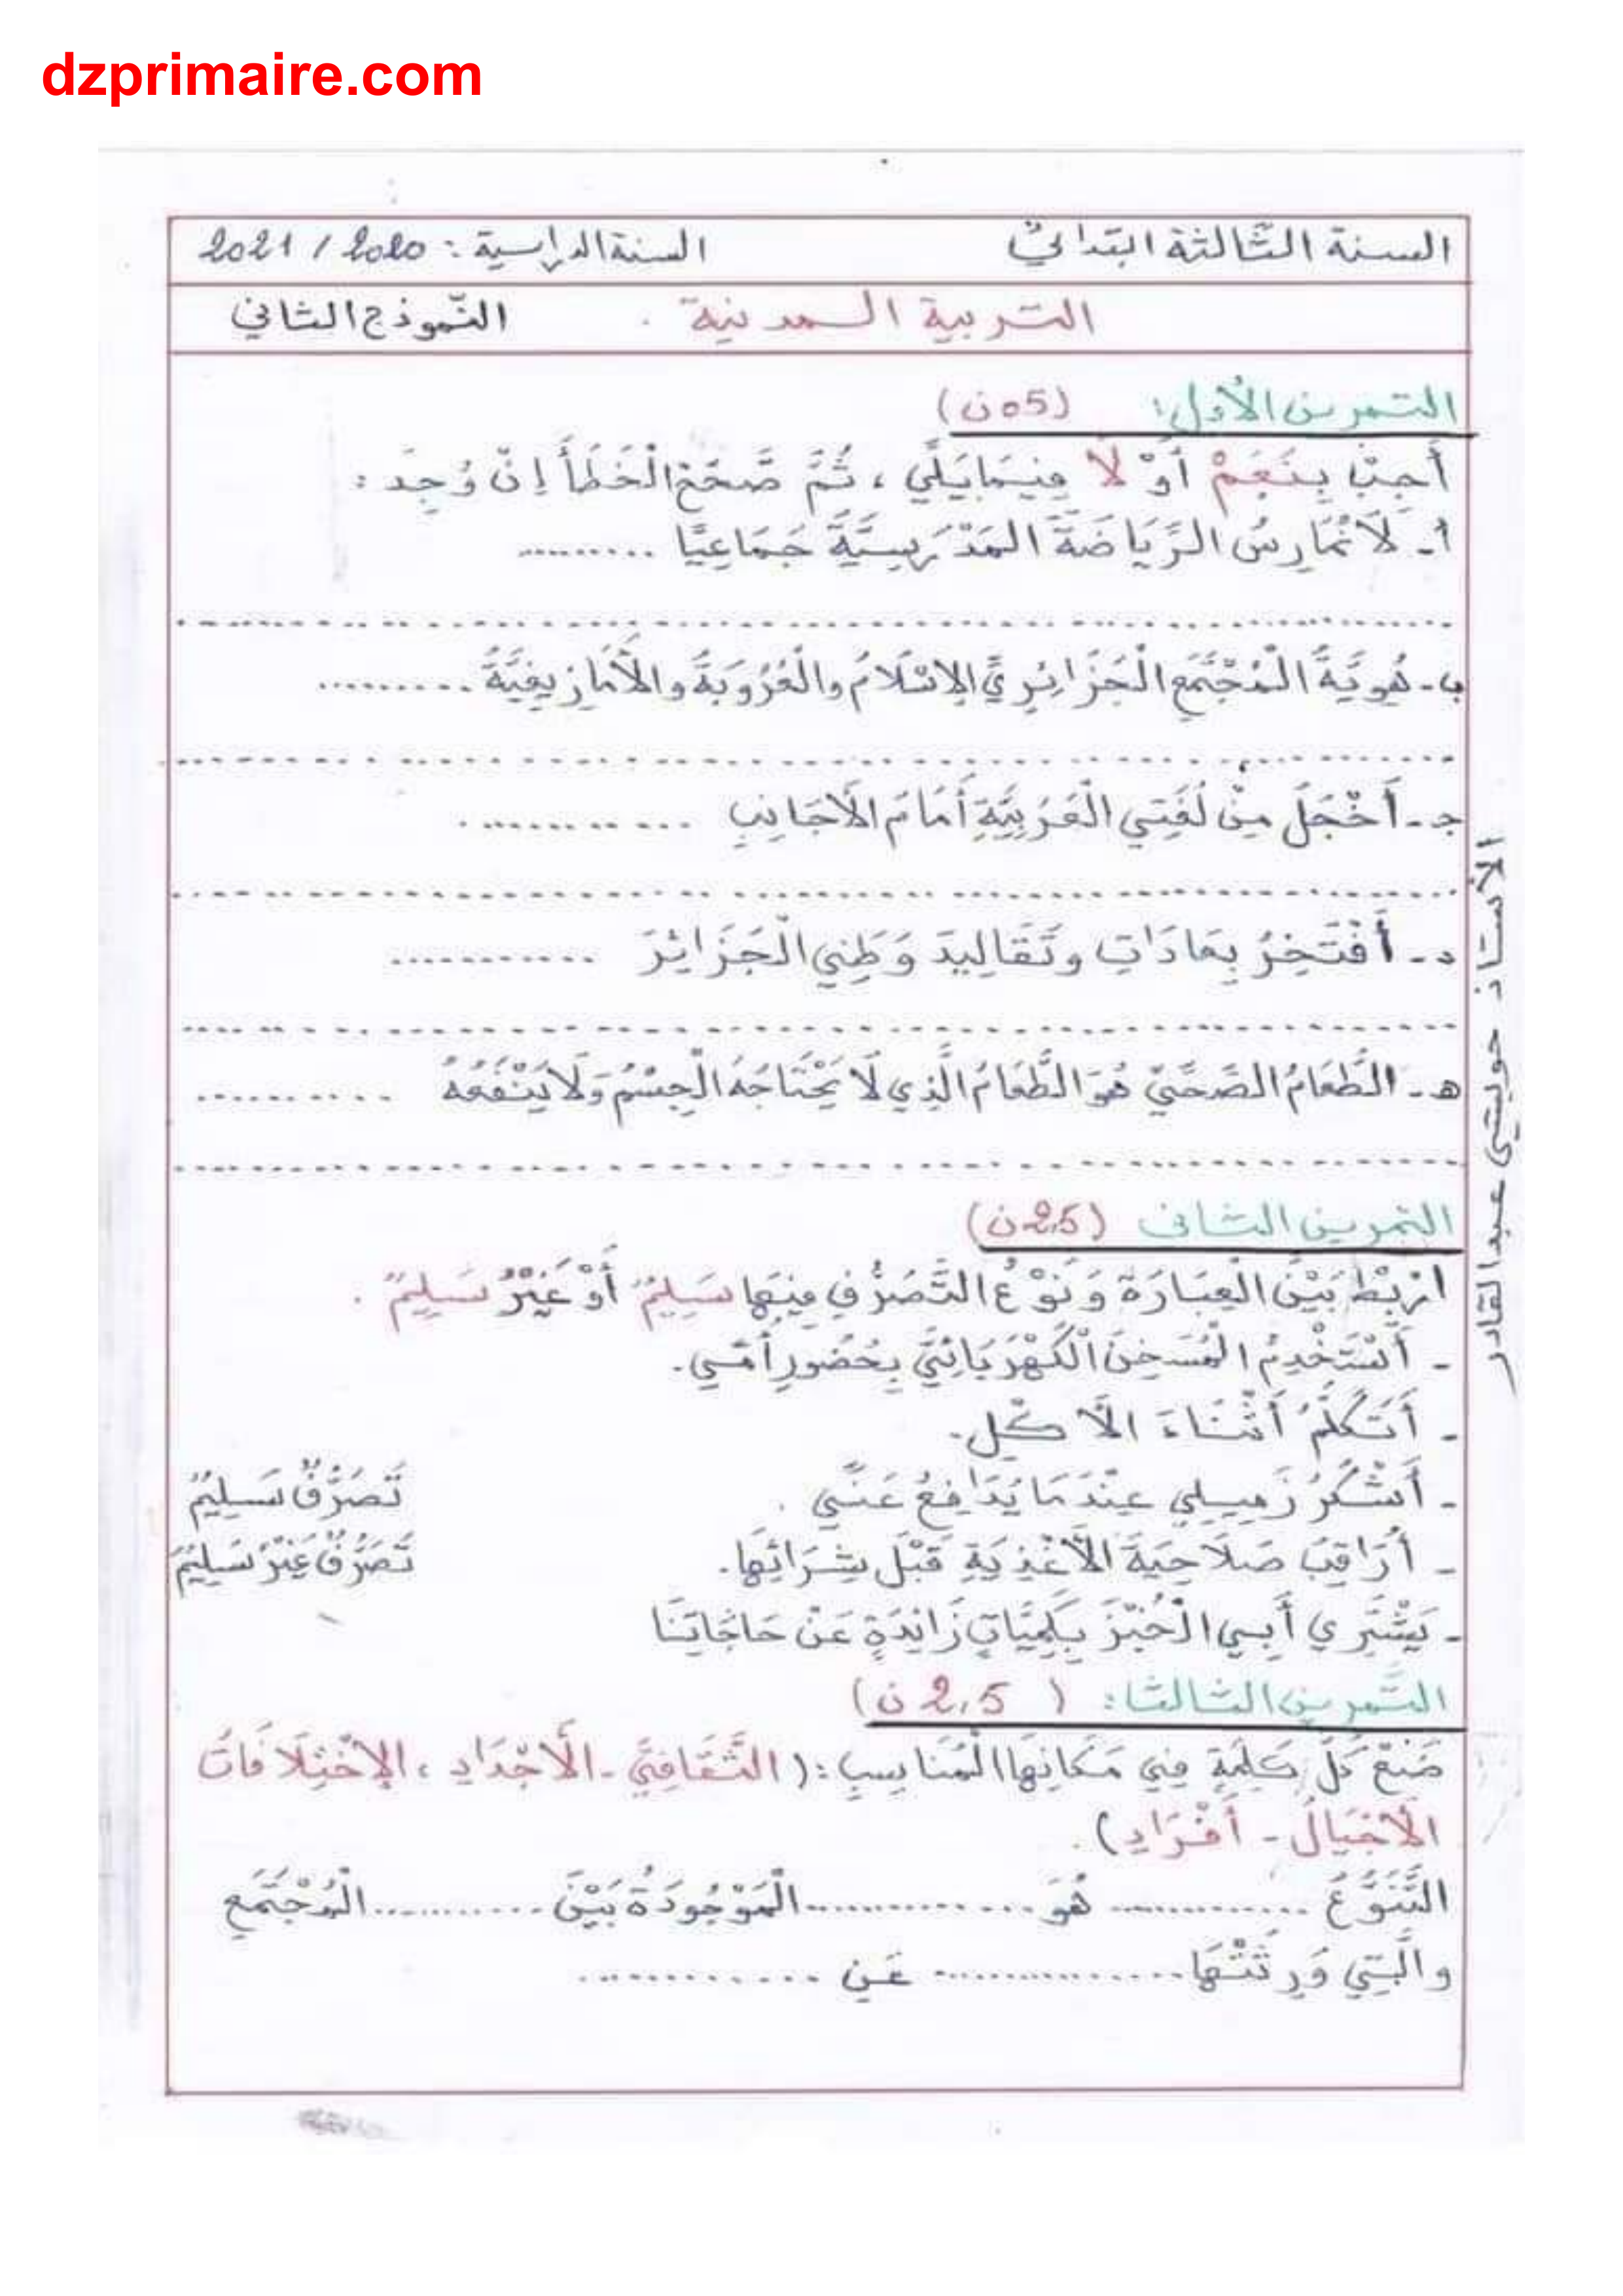 dzprimaire.com
السنة الثّالثة ابتدائيّ السنة الدراسية : 2020 / 2021
التربية المدنية . النّموذج الثاني
التمرين الأول: (05ن)
أَجِبْ بِنَعَمْ أَوْ لَا فِيمَا يَلِي ، ثُمَّ صَحِّحْ الْخَطَأَ إِنْ وُجِدَ :
أ- لَا نُمَارِسُ الرِّيَاضَةَ المَدْرَسِيَّةَ جَمَاعِيًّا ..........
ب- هُوِيَّةُ الْمُجْتَمَعِ الْجَزَائِرِيَّ الإسْلَامُ والْعُرُوبَةُ والأَمَازِيغِيَّةُ ..........
ج- أَخْجَلُ مِنْ لُغَتِي الْعَرَبِيَّةِ أَمَامَ الأَجَانِبِ ............
د- أَفْتَخِرُ بِعَادَاتِ وتَقَالِيدَ وَطَنِي الْجَزَائِرَ ............
ه- الطَّعَامُ الصِّحِّيّ هُوَ الطَّعَامُ الَّذِي لَا يَحْتَاجُهُ الْجِسْمُ وَلَا يَنْفَعُهُ ..........
التمرين الثاني (2,5ن)
ارْبِطْ بَيْنَ الْعِبَارَةِ وَنَوْعُ التَّصَرُّفِ فِيهَا سَلِيمٌ أَوْ غَيْرُ سَلِيمٌ .
- أَسْتَخْدِمُ الْمُسَخِنَ الْكَهْرَبَائِيَّ بِحُضُورِ أُمِّي.
- أَتَكَلَّمُ أَثْنَاءَ الأَكْلِ.
- أَشْكُرُ زَمِيلِي عِنْدَمَا يُدَافِعُ عَنِّي . تَصَرُّفٌ سَلِيمٌ
- أُرَاقِبُ صَلَاحِيَةَ الأَغْذِيَةِ قَبْلَ شِرَائِهَا. تَصَرُّفٌ غَيْرُ سَلِيمٌ
- يَشْتَرِي أَبِي الْخُبْزَ بِكَمِيَّاتٍ زَائِدَةٍ عَنْ حَاجَاتِنَا
التَّمرين الثالث: ( 2,5 ن)
ضَعْ كُلَّ كَلِمَةٍ فِي مَكَانِهَا الْمُنَاسِبِ : ( الثَّقَافِيَّ - الأَجْدَادِ ، الإخْتِلَافَاتُ
الأَجْيَالُ - أَفْرَادِ ) .
التَّنَوُّعُ ............ هُوَ ............ الْمَوْجُودَةُ بَيْنَ ............ الْمُجْتَمَعِ
والَّتِي وَرِثَتْهَا ............ عَنِ ............
الأستاذ حويشي عبد القادر